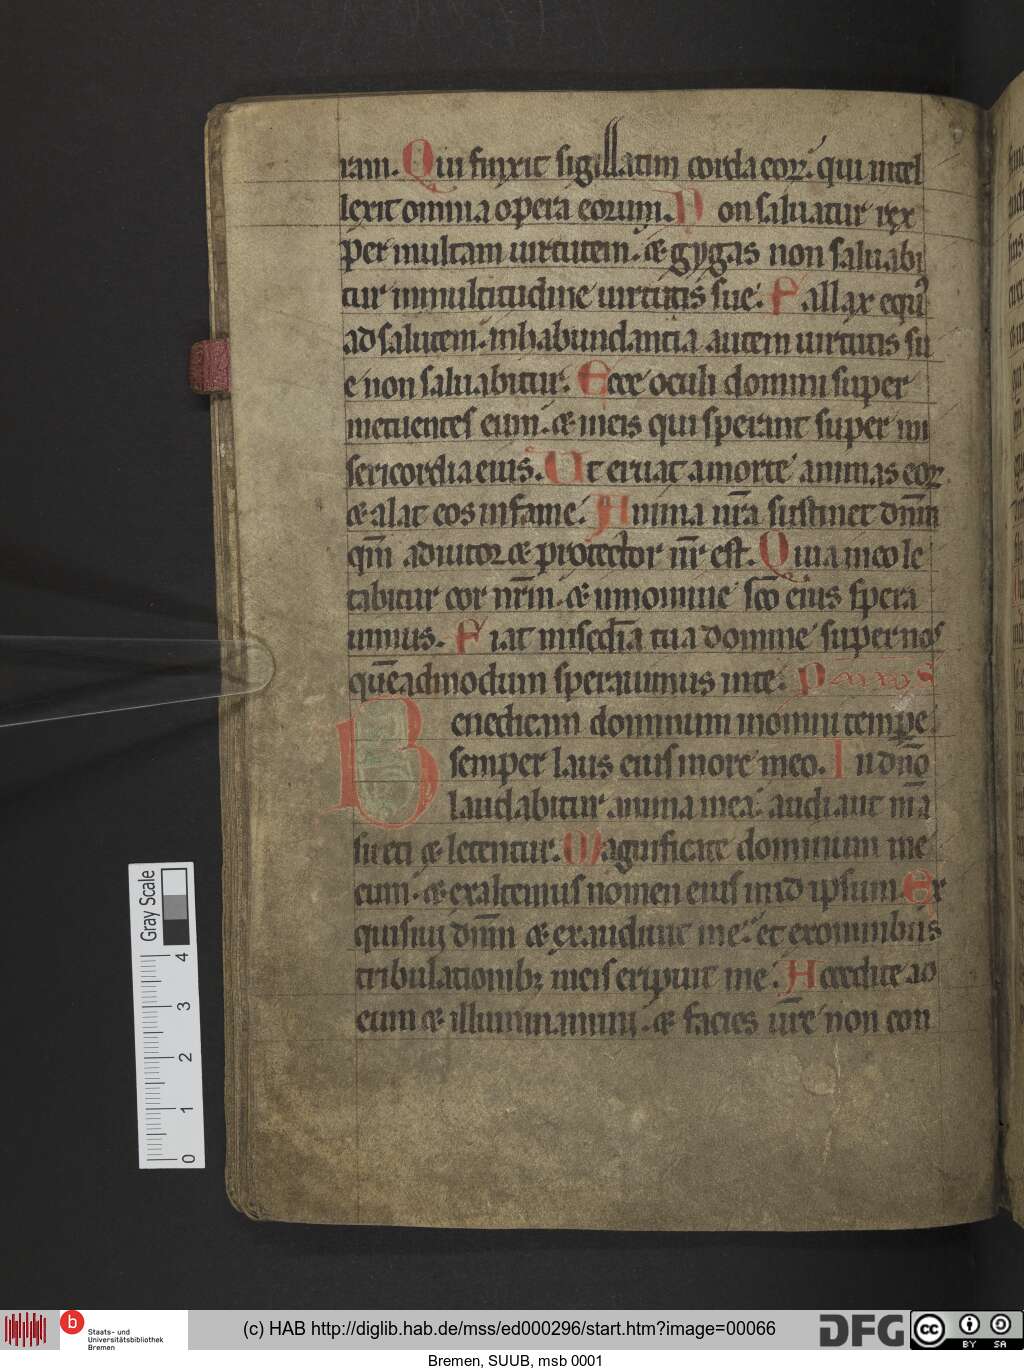 ram. Qui finxit sigillatim corda eoꝝ. qui intel
lexit omnia opera eorum. Non saluatur rex
per multam uirtutem. & gygas non saluabi
tur in multitudine uirtutis sue. Fallax equꝰ
ad salutem. in habundantia autem uirtutis su
e non saluabitur. Ecce oculi domini super
metuentes eum. & in eis qui sperant super mi
sericordia eius. Ut eruat a morte animas eoꝝ.
& alat eos in fame. Anima nr̄a sustinet dn̄m
qm̄ adiutor & protector nr̄ est. Quia in eo le
tabitur cor nr̄m. & in nomine sc̄o eius spera
uimus. Fiat misc̄dia tua domine super nos
quēadmodum sperauimus in te.
Benedicam dominum in omni tempe
semper laus eius in ore meo. In dn̄o
laudabitur anima mea. audiant mā
sueti & letentur. Magnificate dominum me
cum. & exaltemus nomen eius in id ipsum. Ex
quisiuj dn̄m & exaudiuit me. et ex omnibus
tribulationibꝫ meis eripuit me. Accedite ad
eum & illuminamini. & facies ur̄e non con
Gray Scale
4
3
2
1
0
b Staats- und
Universitätsbibliothek
Bremen
(c) HAB http://diglib.hab.de/mss/ed000296/start.htm?image=00066
DFG
cc BY SA
Bremen, SUUB, msb 0001